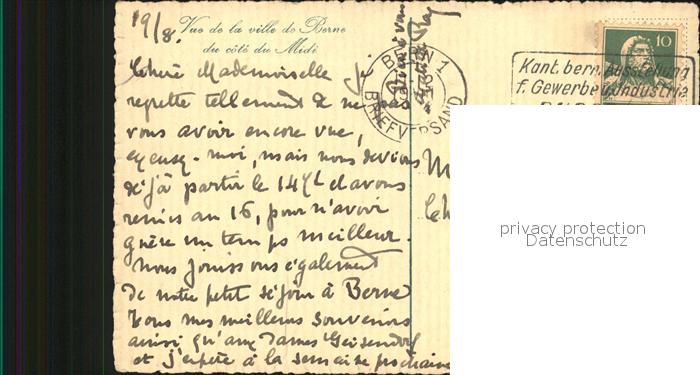 19/8.
Vue de la ville de Berne
du côté du Midi
Chère Mademoiselle Je
regrette tellement de ne pas
vous avoir encore vue,
moi, mais nous devions
déjà partir le 14 et avons
remis au 16, pour n'avoir
guère un temps meilleur.
Nous jouissons également
de notre petit séjour à Berne
Tous mes meilleurs souvenirs
ainsi qu'aux Dames Geisendorf
et j'espère à la semaine prochaine
BERN 1
BRIEFVERSAND
10
Kant. bern. Ausstellung
f. Gewerbe u. Industrie
M
Ch
privacy protection
Datenschutz